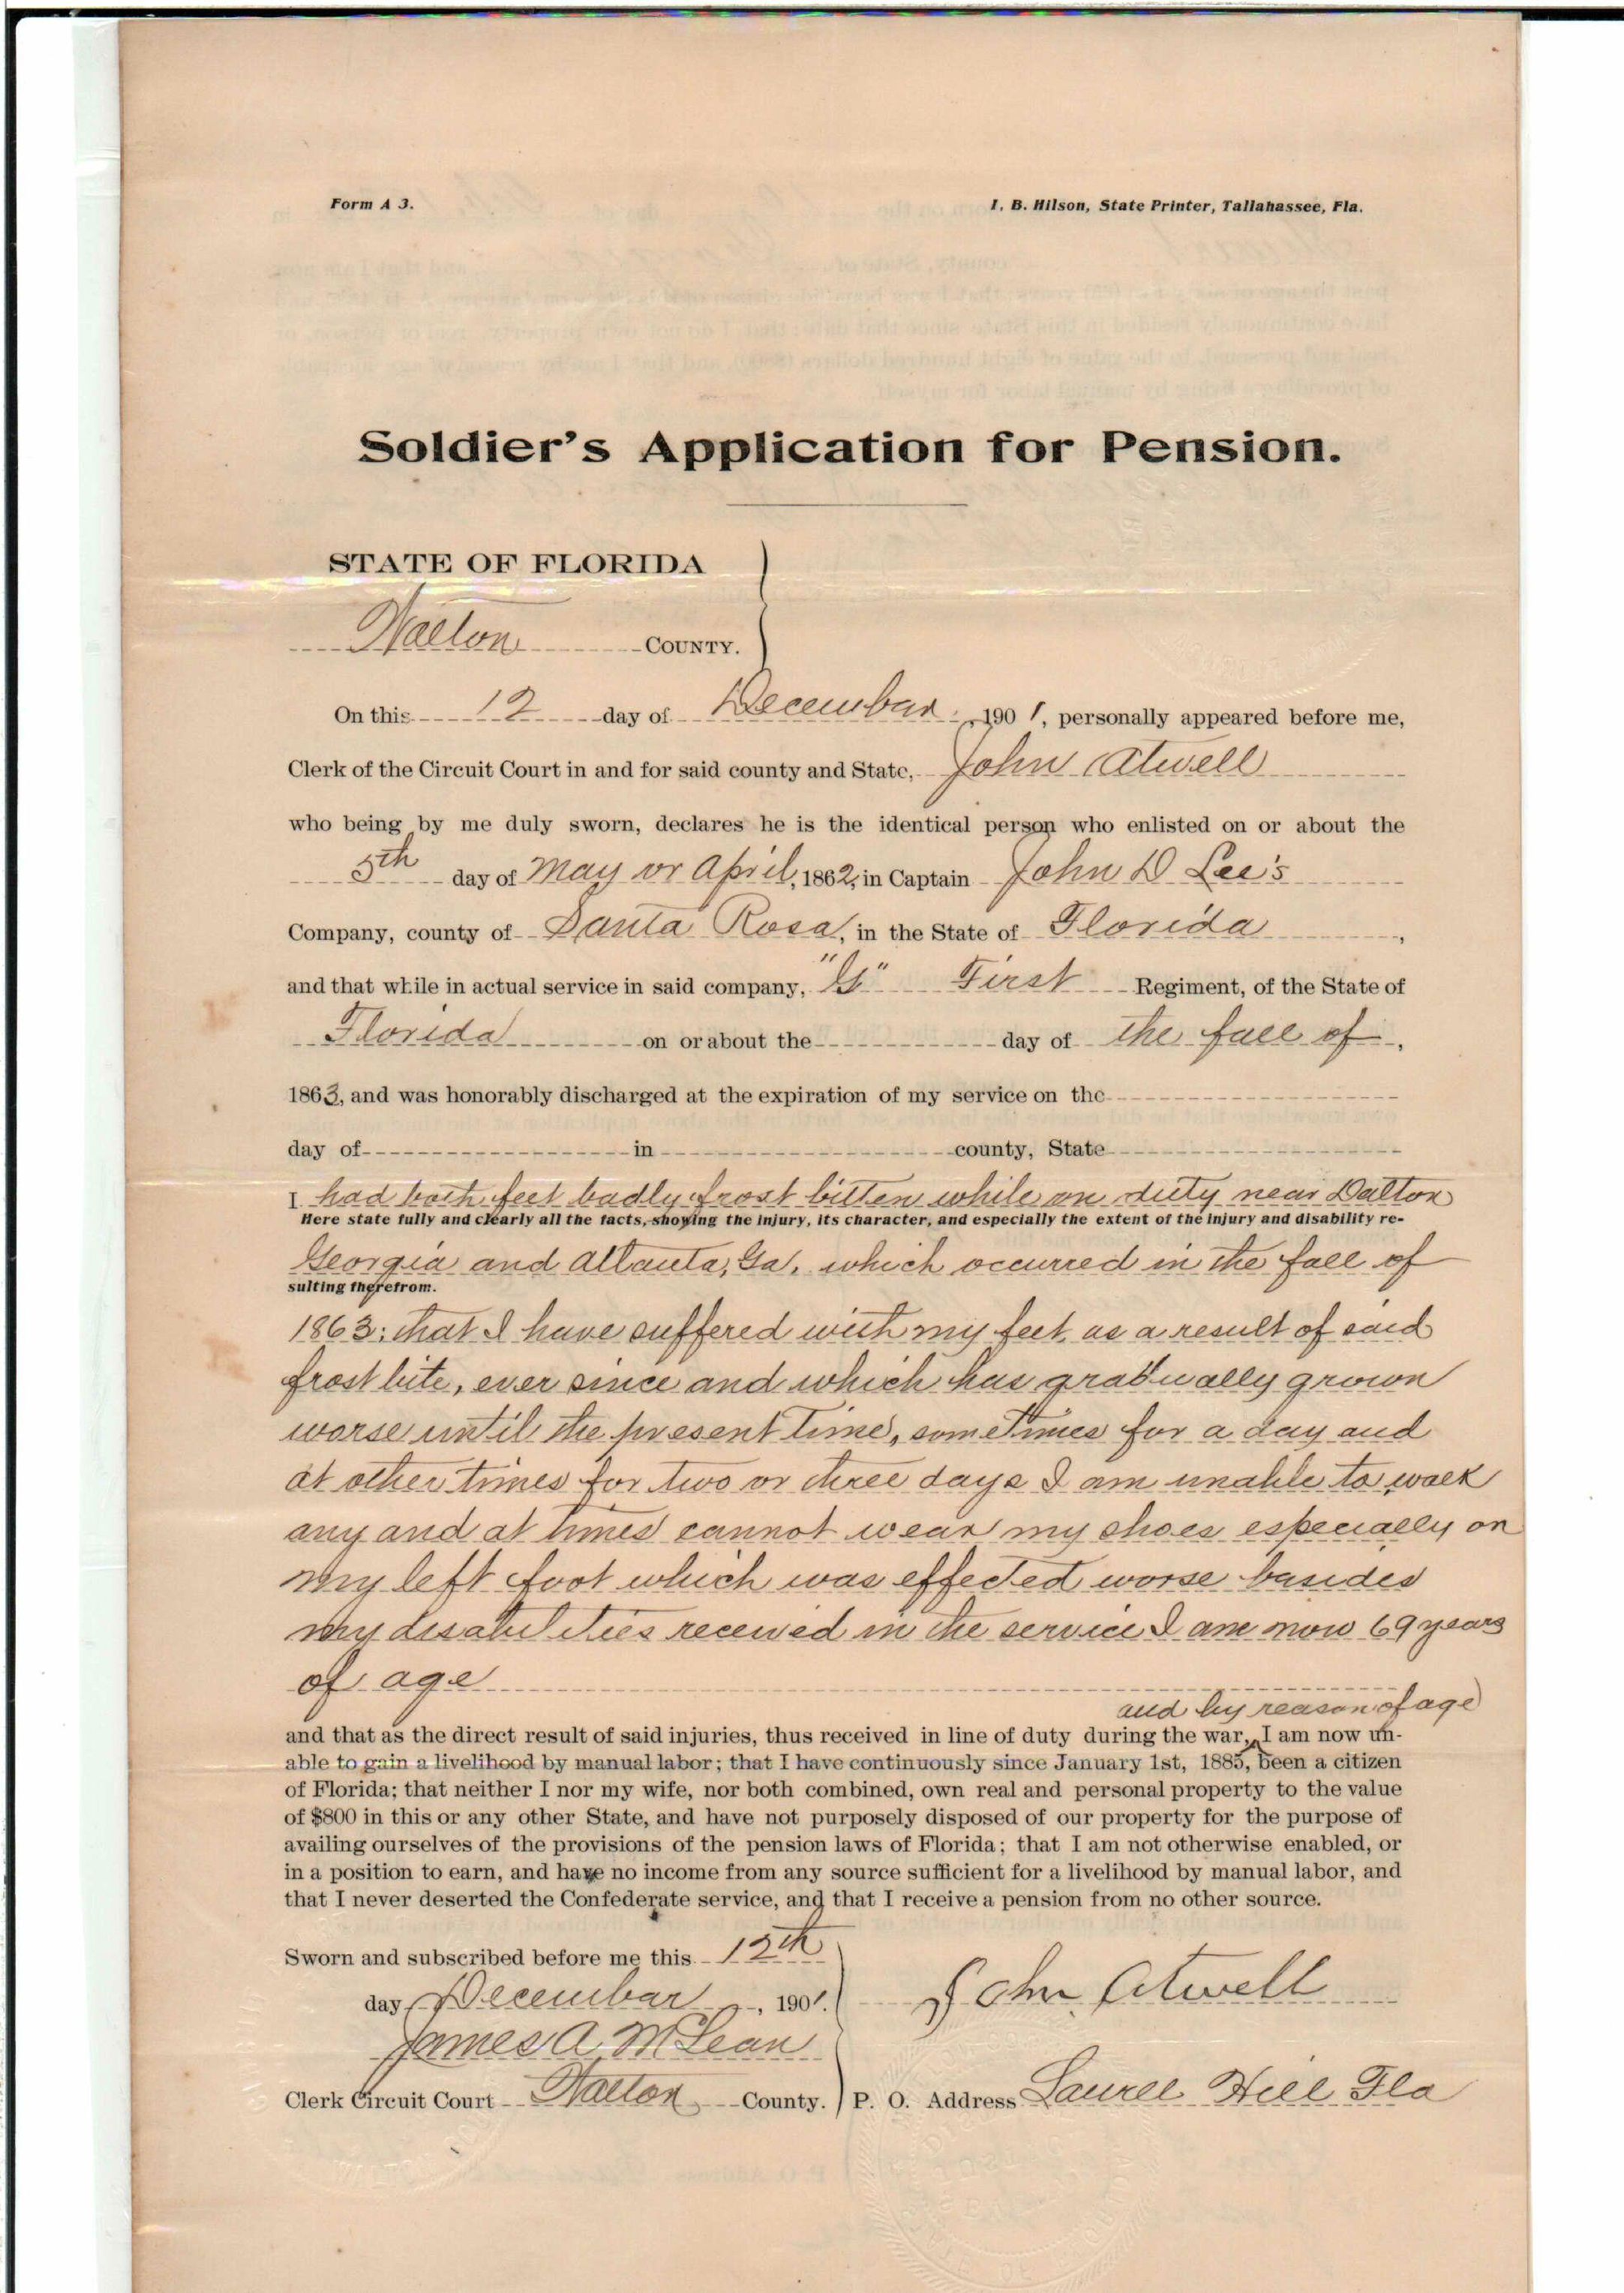 Form A 3.
I. B. Hilson, State Printer, Tallahassee, Fla.
Soldier's Application for Pension.
STATE OF FLORIDA
Walton COUNTY.
On this 12 day of Decembar, 1901, personally appeared before me,
Clerk of the Circuit Court in and for said county and State, John Atwell
who being by me duly sworn, declares he is the identical person who enlisted on or about the
5th day of May or April, 1862, in Captain John D Lee's
Company, county of Santa Rosa, in the State of Florida,
and that while in actual service in said company, "G" First Regiment, of the State of
Florida on or about the day of the fall of,
1863, and was honorably discharged at the expiration of my service on the
day of in county, State
I had both feet badly frost bitten while on duty near Dalton
Here state fully and clearly all the facts, showing the injury, its character, and especially the extent of the injury and disability re-
Georgia and Atlanta, Ga, which occurred in the fall of
sulting therefrom.
1863; that I have suffered with my feet, as a result of said
frost bite, ever since and which has gradually grown
worse until the present time, sometimes for a day and
at other times for two or three days I am unable to walk
any and at times cannot wear my shoes especially on
my left foot which was effected worse basides
my disabilities received in the service I am now 69 years
of age
and by reason of age
and that as the direct result of said injuries, thus received in line of duty during the war, I am now un-
able to gain a livelihood by manual labor; that I have continuously since January 1st, 1885, been a citizen
of Florida; that neither I nor my wife, nor both combined, own real and personal property to the value
of $800 in this or any other State, and have not purposely disposed of our property for the purpose of
availing ourselves of the provisions of the pension laws of Florida; that I am not otherwise enabled, or
in a position to earn, and have no income from any source sufficient for a livelihood by manual labor, and
that I never deserted the Confederate service, and that I receive a pension from no other source.
Sworn and subscribed before me this 12th
day Decembar, 1901.
John Atwell
James A McLean
Clerk Circuit Court Walton County.
P. O. Address Laurel Hill Fla